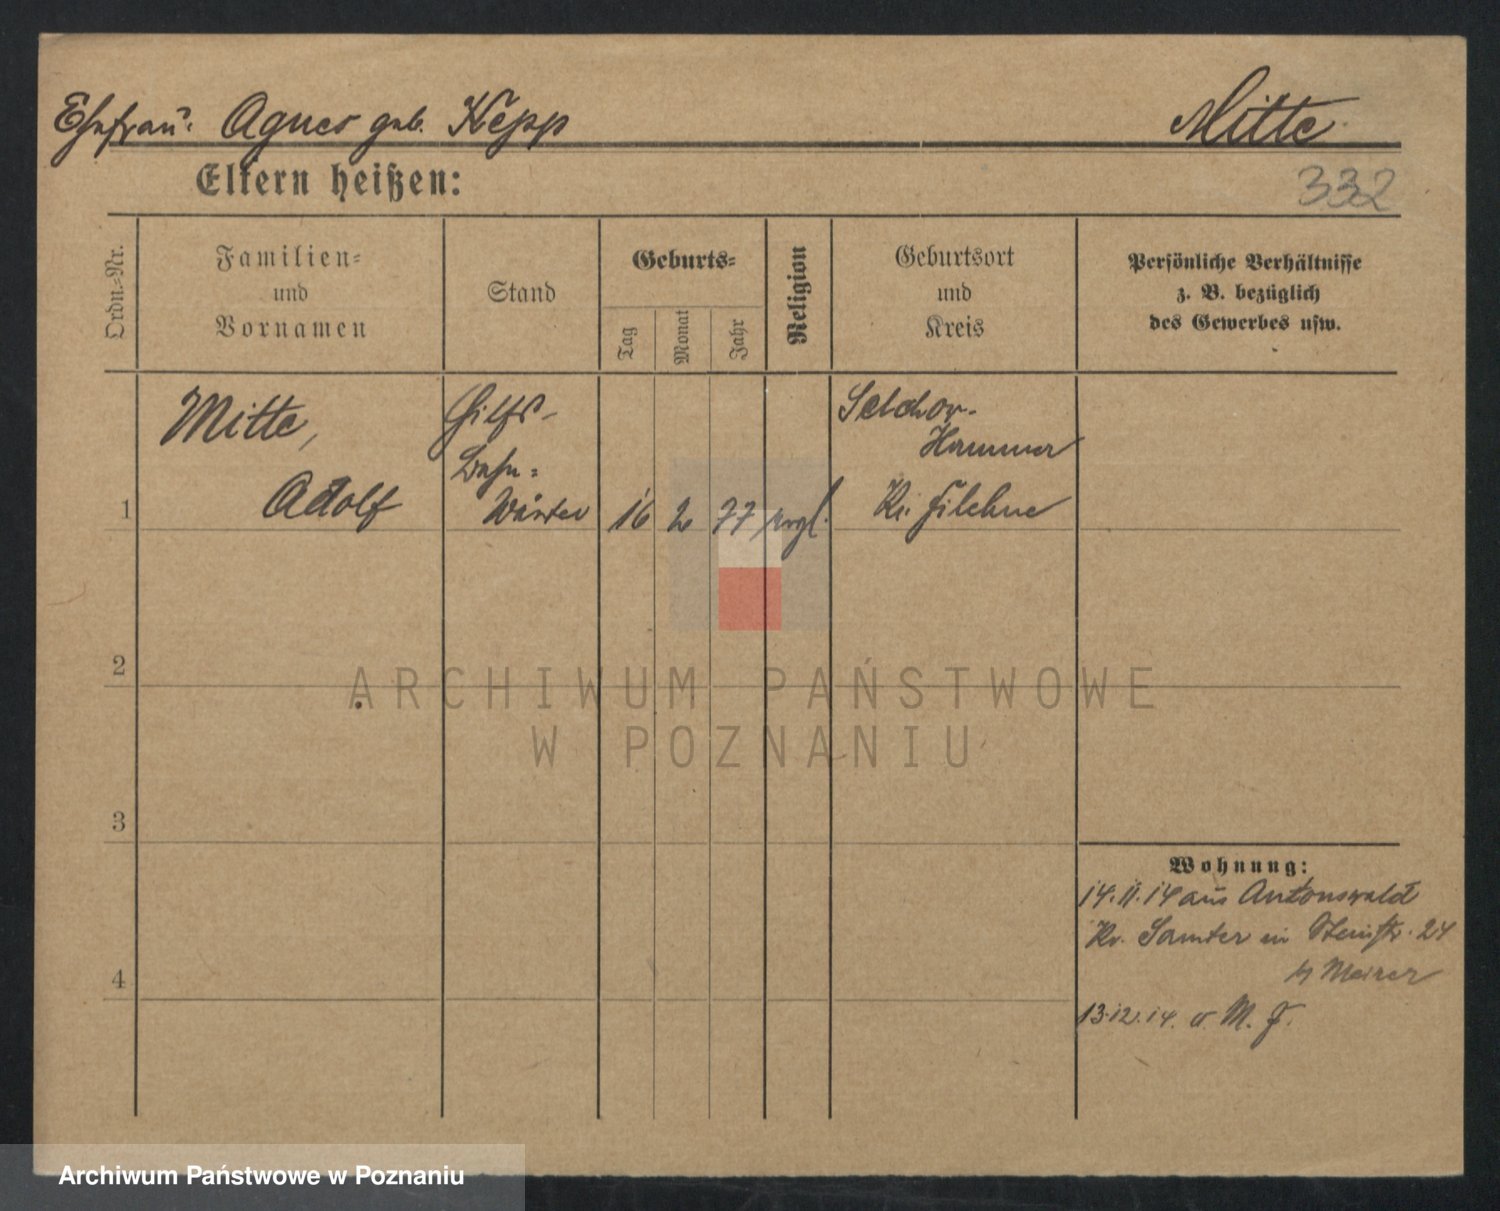 Ehefrau: Agnes geb. Kepp
Mitte
Eltern heißen:
332
Ordn.-Nr.
Familien-
und
Vornamen
Stand
Geburts-
Tag
Monat
Jahr
Religion
Geburtsort
und
Kreis
Persönliche Verhältnisse
z. B. bezüglich
des Gewerbes usw.
1
Mitte,
Adolf
Hilfs-
Bahn-
Wärter
16
2
77
evgl.
Selchow-
Hammer
Kr. Filehne
2
ARCHIWUM PAŃSTWOWE
W POZNANIU
3
4
Wohnung:
14.11.14 aus Antonswald
Kr. Samter in Steinstr. 24
13.12.14. M. F.
Archiwum Państwowe w Poznaniu